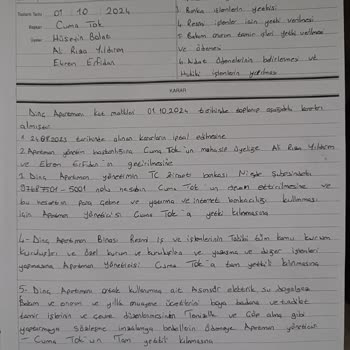 Toplantı Tarihi 01 10 2024
Başkan Cuma Tok
Üyeler Hüseyin
Ali Rıza Yıldırım
Ekrem Erfidan
3. Banka işlemlerin yetkisi
4. Resmi işler için yetki verilmesi
5. Bakım onarım tamir işleri yetki verilmesi
ve ödemesi
6. Aidat ödemelerinin belirlenmesi ve
Hukuki işlemlerin yapılması
KARAR
Dinç Apartmanı kat malikleri 01.10.2024 tarihinde toplanıp aşağıdaki kararları
almıştır.
1. tarihinde alınan kararların iptal edilmesine
2. Apartman yönetim başkanlığına Cuma Tok'un mahasip üyeliğe Ali Rıza Yıldırım
ve Ekrem Erfidan'ın geçirilmesine
3. Dinç Apartmanı yönetimin TC Ziraat bankası Şubesindeki
5001 nolu hesabın Cuma Tok'un devam ettirilmesine ve
bu hesaptan para çekme ve yatırma ve internet bankacılığı kullanması
için Apartman Yöneticisi Cuma Tok'a yetki kılınmasına
4- Dinç Apartmanı Binası Resmi iş ve işlemlerinin Takibi tüm kamu kurum
kuruluşları ve özel kurum ve kuruluşlara ve yazışma ve diğer işlemleri
yapmasına Apartman Yöneticisi Cuma Tok'a tam yetkili kılınmasına
5- Dinç Apartmanı ortak kullanıma ait Asansör elektirik su doğalgaz
Bakım ve onarım ve yıllık muayene ücretleri boya badana ve
tamir işlerinin ve çevre düzenlemesinin Temizlik ve Çöp alma gibi
yaptırmaya sözleşme imzalamaya bedellerin ödemeye Apartman yöneticisi
- Cuma Tok'un Tam yetkili kılınmasına